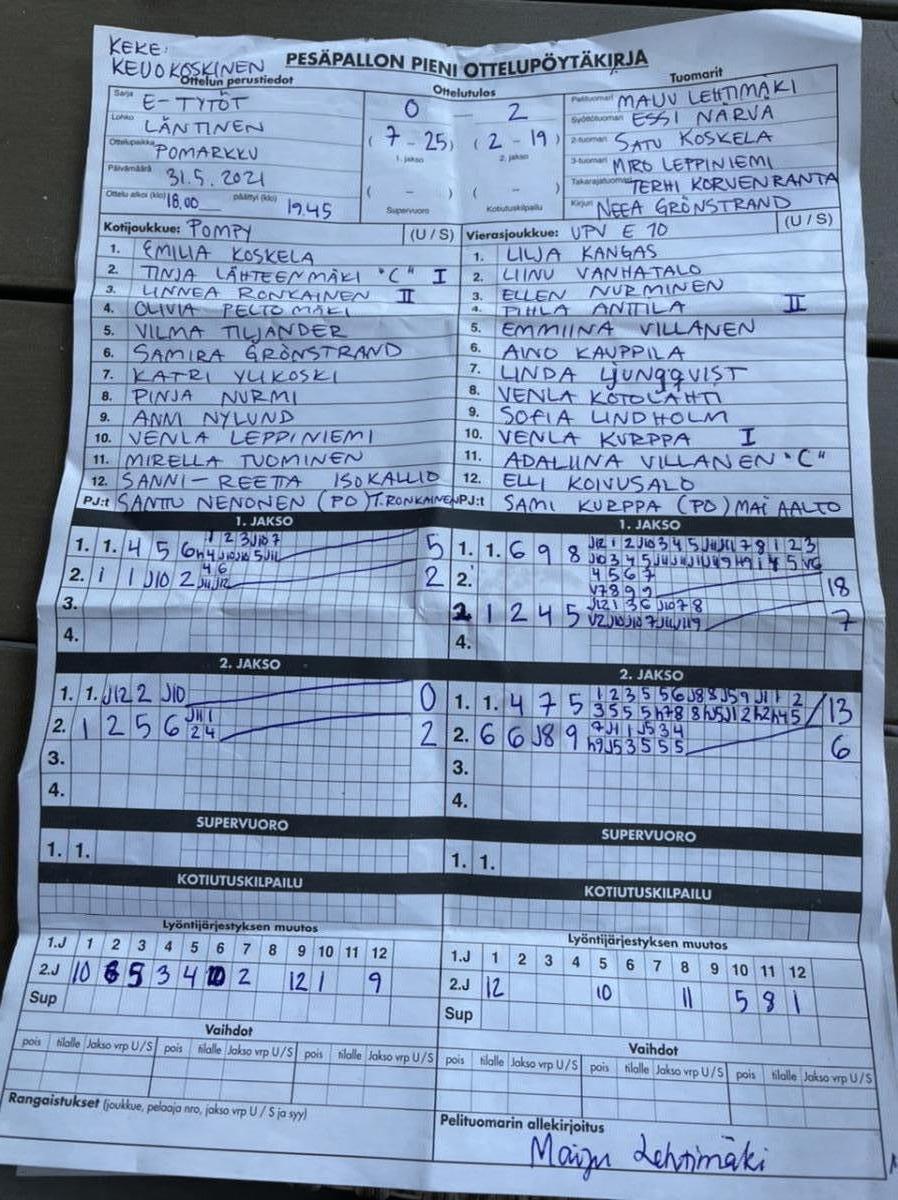 KEKE:
KEIJO KOSKINEN
PESÄPALLON PIENI OTTELUPÖYTÄKIRJA
Ottelun perustiedot
Ottelutulos
Tuomarit
Sarja E-TYTÖT
Lohko LÄNTINEN
Ottelupaikka POMARKKU
Päivämäärä 31.5.2021
Ottelu alkoi (klo) 18.00 päättyi (klo) 19.45
0 2
(7-25) (2-19)
1. jakso 2. jakso
( - ) ( - )
Supervuoro Kotiutuskilpailu
Pelituomari MAIJU LEHTIMÄKI
Syöttötuomari ESSI NÄRVÄ
2-tuomari SATU KOSKELA
3-tuomari MIRO LEPPINIEMI
Takarajatuomari TERHI KORVENRANTA
Kirjuri NEEA GRÖNSTRAND
Kotijoukkue: POMPY (U / S)
1. EMILIA KOSKELA
2. TINJA LÄHTEENMÄKI "C" I
3. LINNEA RONKAINEN II
4. OLIVIA PELTOMÄKI
5. VILMA TILJANDER
6. SAMIRA GRÖNSTRAND
7. KATRI YLIKOSKI
8. PINJA NURMI
9. ANNI NYLUND
10. VENLA LEPPINIEMI
11. MIRELLA TUOMINEN
12. SANNI-REETTA ISOKALLIO
PJ:t SANTU NENONEN (PO) T.RONKAINEN
Vierasjoukkue: UPV E 10 (U / S)
1. LILJA KANGAS
2. LIINU VANHATALO
3. ELLEN NURMINEN
4. PIHLA ANTTILA II
5. EMMIINA VILLANEN
6. AINO KAUPPILA
7. LINDA LJUNGQVIST
8. VENLA KOTOLAHTI
9. SOFIA LINDHOLM
10. VENLA KURPPA I
11. ADALIINA VILLANEN "C"
12. ELLI KOIVUSALO
PJ:t SAMI KURPPA (PO) MAI AALTO
1. JAKSO
1. 1. 4 5 6 5
2. 1 1 J10 2 2
3.
4.
2. JAKSO
1. 1. J12 2 J10 0
2. 1 2 5 6 2
3.
4.
SUPERVUORO
1. 1.
KOTIUTUSKILPAILU
1. JAKSO
1. 1. 6 9 8
2. 18
1 2 4 5 7
4.
2. JAKSO
1. 1. 4 7 5 13
2. 6 6 J8 9 6
3.
4.
SUPERVUORO
1. 1.
KOTIUTUSKILPAILU
Lyöntijärjestyksen muutos
1.J 1 2 3 4 5 6 7 8 9 10 11 12
2.J 10 5 3 4 2 12 1 9
Sup
Vaihdot
pois tilalle Jakso vrp U/S pois tilalle Jakso vrp U/S pois tilalle Jakso vrp U/S
Rangaistukset (joukkue, pelaaja nro, jakso vrp U / S ja syy)
Lyöntijärjestyksen muutos
1.J 1 2 3 4 5 6 7 8 9 10 11 12
2.J 12 10 11 5 8 1
Sup
Vaihdot
pois tilalle Jakso vrp U/S pois tilalle Jakso vrp U/S pois tilalle Jakso vrp U/S
Pelituomarin allekirjoitus
Maiju Lehtimäki